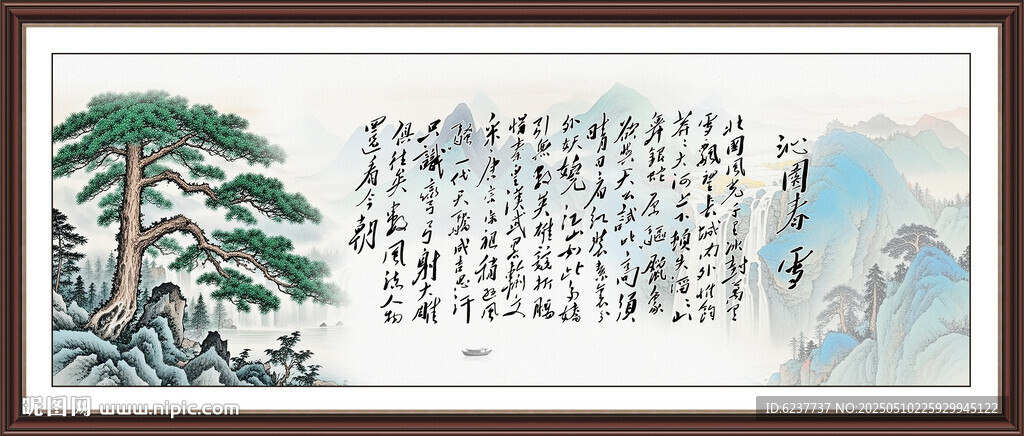 沁園春 雪
北国风光千里冰封萬里
雪飘望长城内外惟餘
莽莽大河上下頓失滔滔山
舞銀蛇原驱腊象
欲與天公試比高须
晴日看红装素裹分
外妖嬈江山如此多嬌
引無數英雄競折腰
惜秦皇漢武略输文
采唐宗宋祖稍逊风
骚一代天驕成吉思汗
只識彎弓射大雕
俱往矣數風流人物
還看今朝
昵图网 www.nipic.com
ID:6237737 NO:20250510225929945122